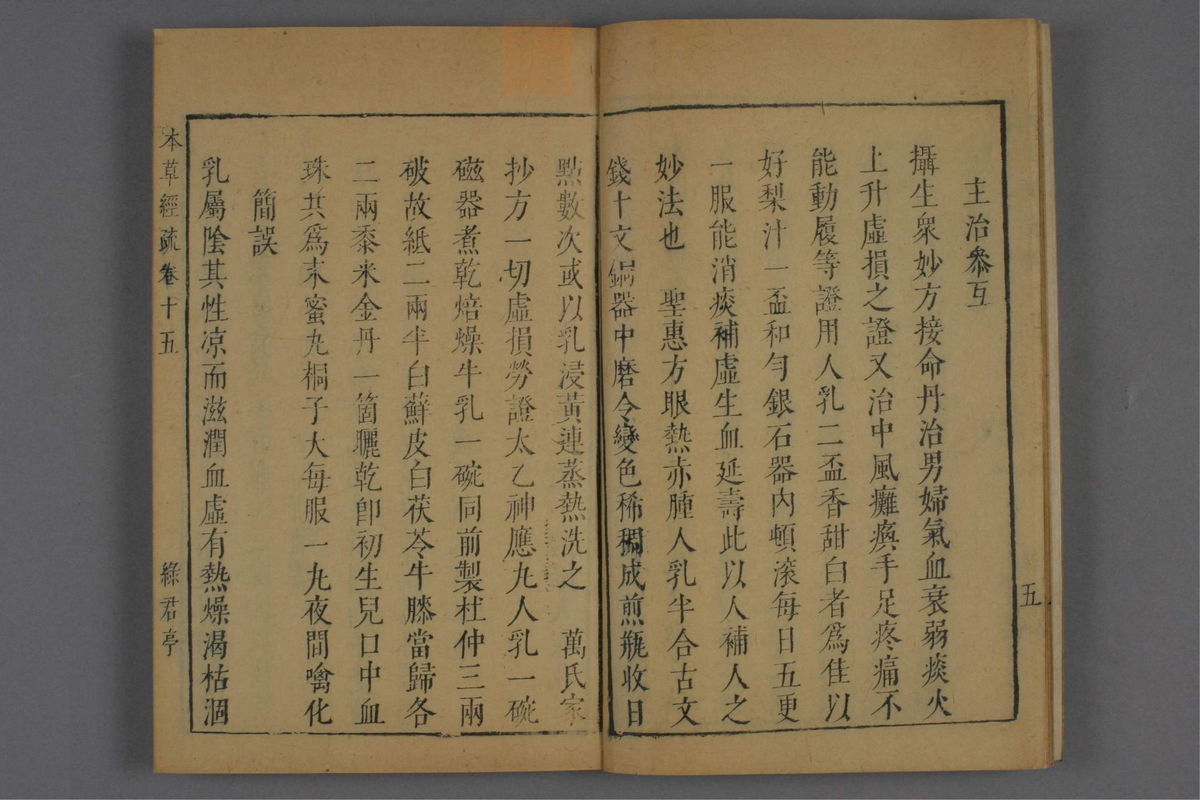 主治參互
攝生衆妙方接命丹治男婦氣血衰弱痰火
上升虛損之證又治中風癱瘓手足疼痛不
能動履等證用人乳二盃香甜白者爲佳以
好梨汁一盃和勻銀石器內頓滚每日五更
一服能消痰補虛生血延壽此以人補人之
妙法也　聖惠方眼熱赤腫人乳半合古文
錢十文銅器中磨令變色稀稠成煎瓶收日
五
點數次或以乳浸黃連蒸熱洗之　萬氏家
抄方一切虛損勞證太乙神應丸人乳一碗
磁器煮乾焙燥牛乳一碗同前製杜仲三兩
破故紙二兩半白蘚皮白茯苓牛膝當歸各
二兩黍米金丹一箇曬乾卽初生兒口中血
珠共爲末蜜丸桐子大每服一丸夜間噙化
簡誤
乳屬陰其性凉而滋潤血虛有熱燥渴枯涸
本草經疏卷十五
綠君亭